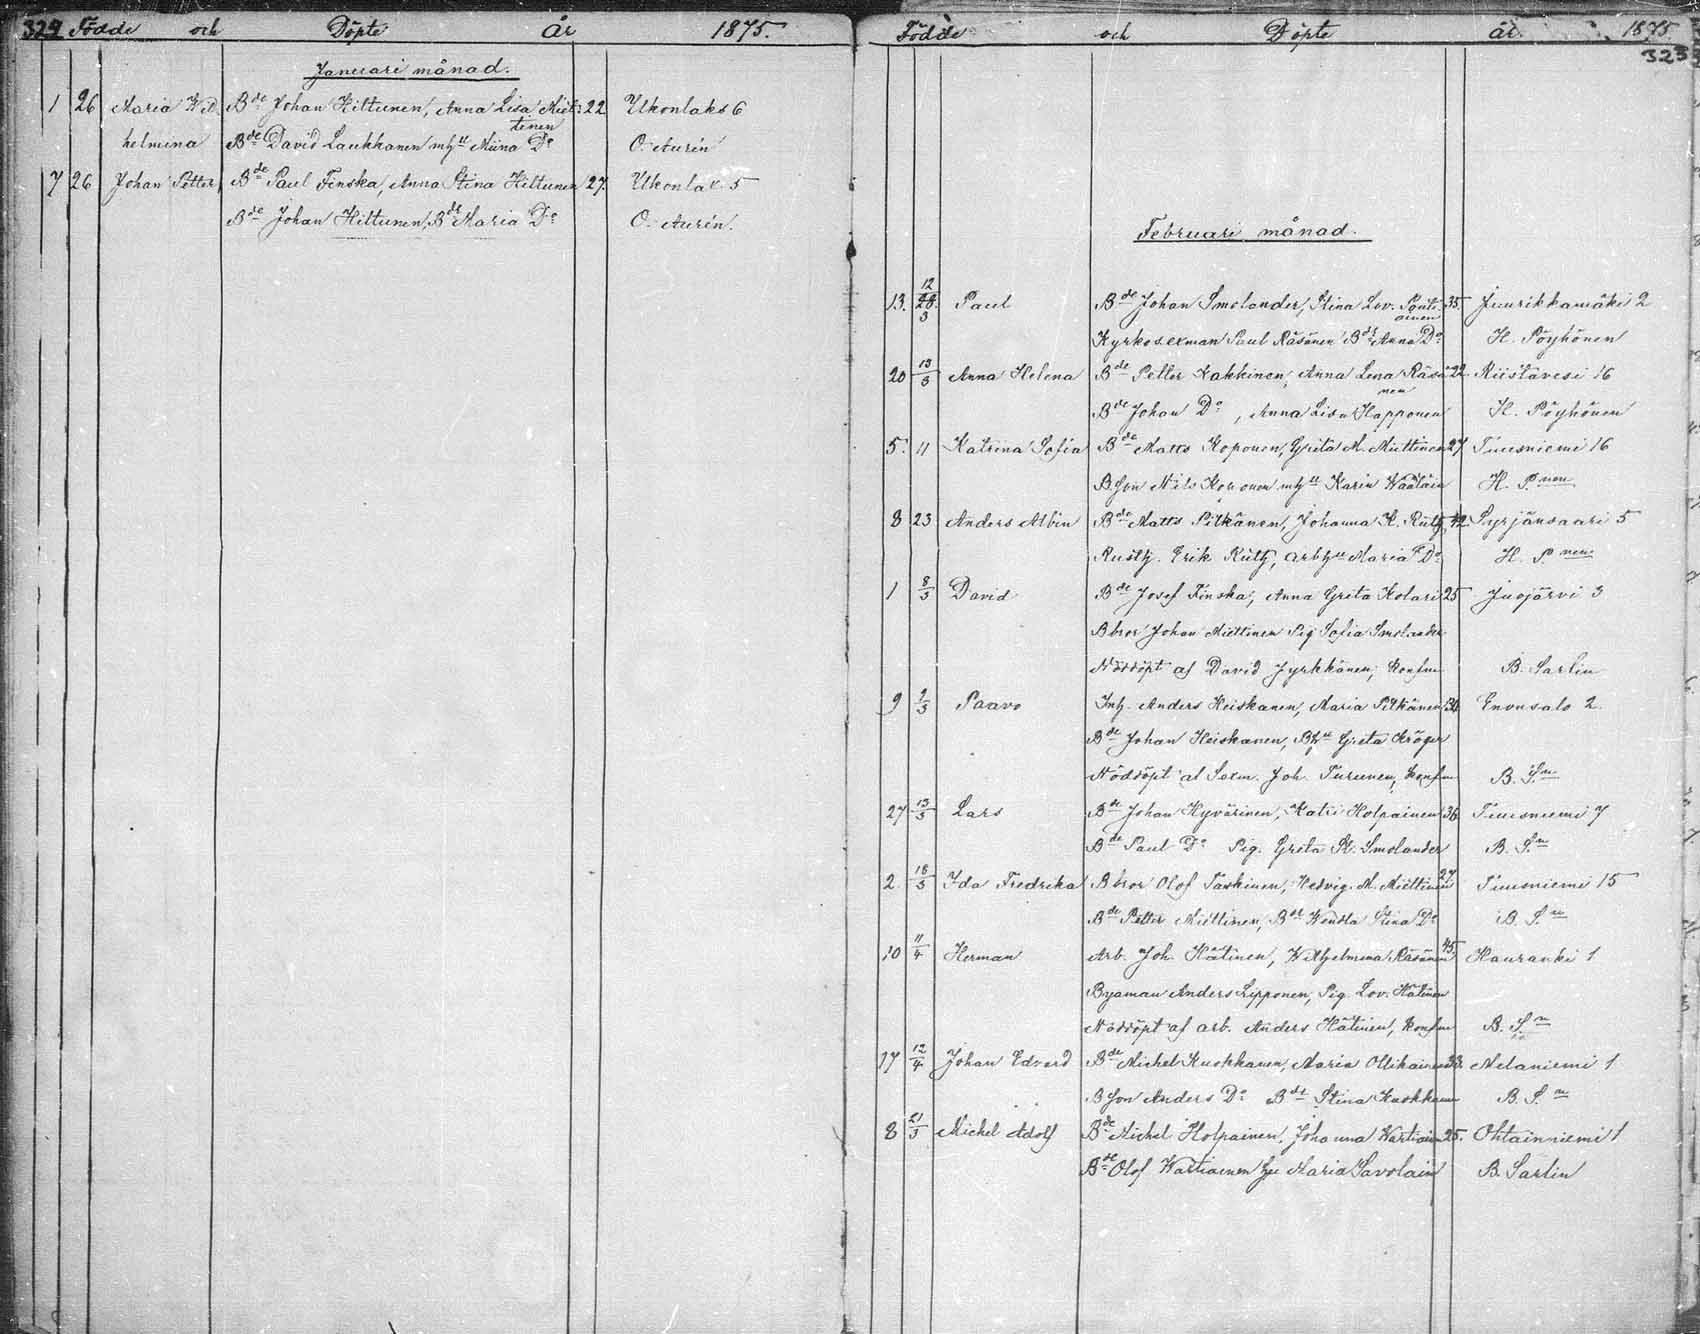 322 Födde och Döpte År 1875.
Januari månad.
1 26 Maria Wil- Bde Johan Hiltunen, Anna Lisa Miet- 22 Ukonlaks 6
tinen
helmina Bde David Laukkanen mhu Miina Do O. Aurén
7 26 Johan Petter Bde Paul Finska, Anna Stina Hiltunen 27. Ukonlax 5
Bde Johan Hiltunen, Bde Maria Do O. Aurén.
Födde och Döpte år 1875
323
Februari månad.
13. 12/3 Paul Bde Johan Smolander, Stina Lov. 35. Juurikkamäki 2
Kyrkosexman Paul Räsänen Bds Anna Do H. Pöyhönen
20 13/3 Anna Helena Bde Petter Kakkinen, Anna Lena Räsä- 22 Riistavesi 16
nen
Bde Johan Do, Anna Lisa Happonen H. Pöyhönen
5. 11 Katrina Sofia Bde Matts Koponen, Greta M. Miettinen 27 Tuusniemi 16
B.son Nils Koponen mhu Karin Wäätäin H. P.nen
8 23 Anders Albin Bde Matts Pitkänen, Johanna K. Rütz 42 Pyrjänsaari 5
Rusth. Erik Rütz, arbhu Maria Do H. P.nen
1 8/3 David Bde Josef Finska, Anna Greta Kolari 25 Juojärvi 3
Bbror Johan Miettinen Pig Sofia Smolander
Nöddöpt af David Jyrkkänen, konfm B. Sarlin
9 7/3 Paavo Inh. Anders Heiskanen, Maria Pitkänen 34 Enonsalo 2.
Bde Johan Heiskanen, Bhu Greta Kröger
Nöddöpt af Sexm. Joh. Turunen, konfm B. S.n
27 13/3 Lars Bde Johan Hyvärinen, Katri Holpainen 36 Tuusniemi 7
Bde Paul Do Pig. Greta St. Smolander B. S.n
2 18/3 Ida Fredrika Bbror Olof Taskinen, Hedvig M. Miettinen 27 Tuusniemi 15
Bde Petter Miettinen, Bde Wendla Stina Do B. S.n
10 11/4 Herman Arb. Joh. Hätinen, Wilhelmina Räsänen 45 Hauranki 1
Byaman Anders Lipponen, Pig. Lov. Hätinen
Nöddöpt af arb. Anders Hätinen, konfm B. S.n
17 12/4 Johan Edvard Bde Michel Kuokkanen, Maria Ollikainen 33. Melaniemi 1
Bson Anders Do Bde Stina Kuokkanen B. S.n
8 21/3 Michel Adolf Bde Michel Holpainen, Johanna Wartiain 25. Ohtainniemi 1
Bde Olof Wartiainen hu Maria Savolain B. Sarlin